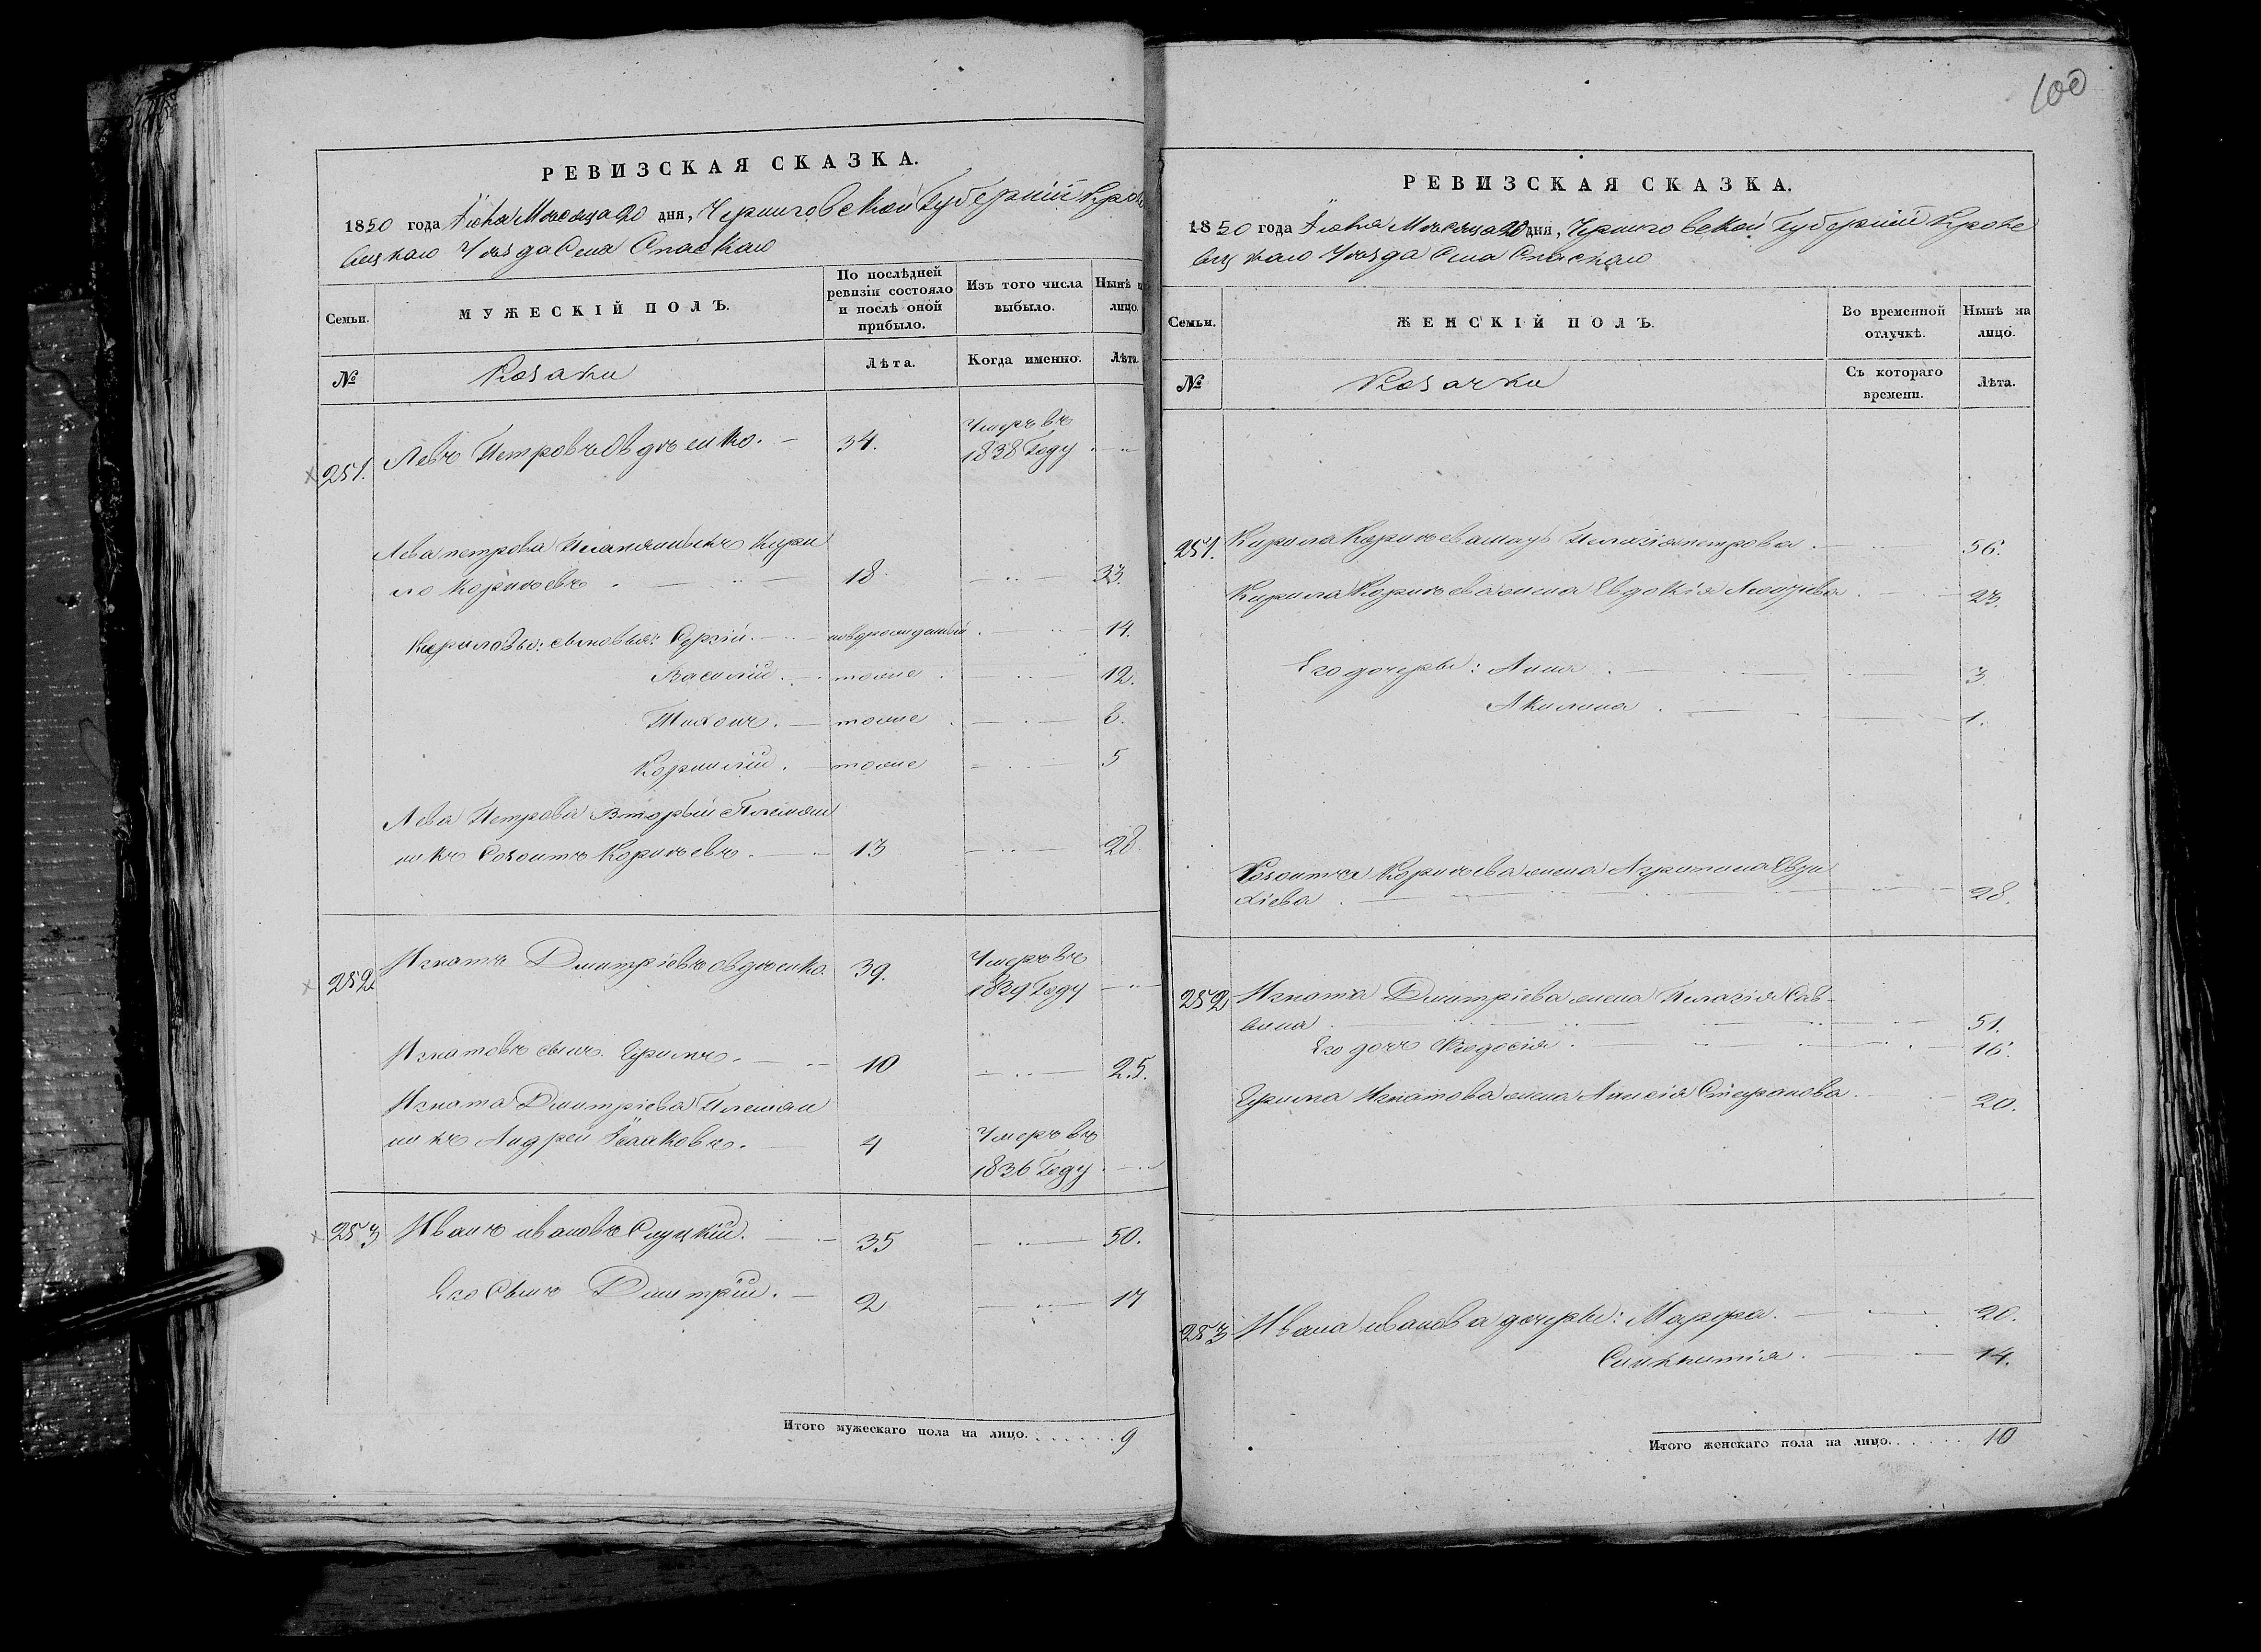 РЕВИЗСКАЯ СКАЗКА.
1850 года Іюня Месяца 20 дня, Черниговской Губерніи Кроле
вецкаго Уѣзда Села Спаскаго
Семьи.
МУЖЕСКІЙ ПОЛЪ.
По послѣдней
ревизіи состояло
и послѣ оной
прибыло.
Изъ того числа
выбыло.
Нынѣ н
лицо.
№
Козаки
Лѣта.
Когда именно.
Лѣта
251. Левъ Петровъ Овдѣенко. 34. Умеръ въ
1838 Году
Лева петрова Племянникъ Кири
ло Корнѣевъ 18 33.
Кириловы: сыновья: Сергій новорожденный 14.
Василій тоже 12.
Тихонъ тоже 8.
Корнилій тоже 5
Лева Петрова Вторый Племян
никъ Созонтъ Корнѣевъ 13 28
252 Игнатъ Дмитріевъ Овдѣенко. 39. Умеръ въ
1839 Году
Игнатовъ сынъ 10 25.
Игната Дмитріева Племян
никъ Андрей 4 Умеръ въ
1836 Году
253 Иванъ ивановъ Слуцкій. 35 50.
Его Сынъ Дмитрій. 2 17
Итого мужескаго пола на лицо. 9
100
РЕВИЗСКАЯ СКАЗКА.
1850 года Іюня Месяца 20 дня, Черниговской Губерніи Кроле
вецкаго Уѣзда Села Спаскаго
Семьи.
ЖЕНСКІЙ ПОЛЪ.
Во временной
отлучкѣ.
Нынѣ на
лицо.
№
Козачки
Съ котораго
времени.
Лѣта.
251. Кирила Корнѣева мать Пелагія петрова 56.
Кирила Корнѣева жена Евдокія 23.
Его дочери: Анна 3
Акилина 1.
Созонта Корнѣева жена Агрипина Евти
хіева 28.
252 Игната Дмитріева жена Пелагія Сав-
вина 51.
Его дочь Феодосія 16.
Игнатова жена Анисія Стефанова 20.
253 Ивана иванова дочери: Марфа. 20.
Синклитія 14.
Итого женскаго пола на лицо. 10